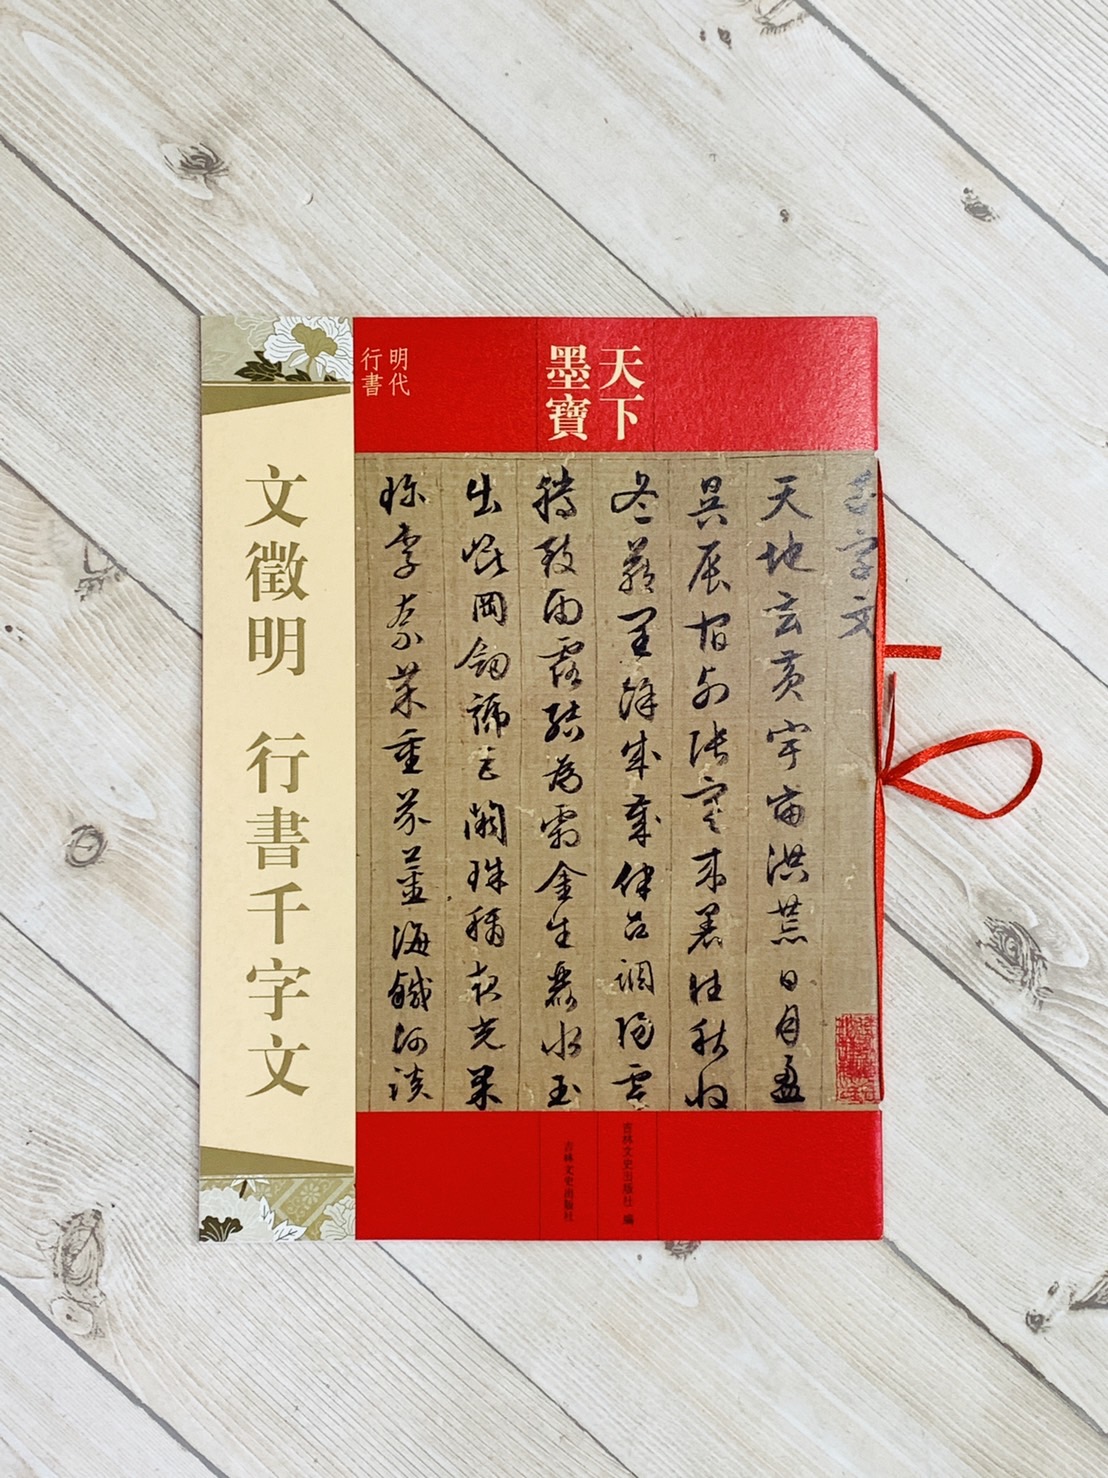 天下
墨寶
明代
行書
文徵明 行書千字文
千字文
天地玄黃宇宙洪荒日月盈
昃辰宿列張寒来暑往秋收
冬藏閏餘成歲律呂調陽雲
騰致雨露結為霜金生麗水玉
出崑岡劍號巨闕珠稱夜光果
珍李柰菜重芥薑海鹹河淡
吉林文史出版社 編
吉林文史出版社